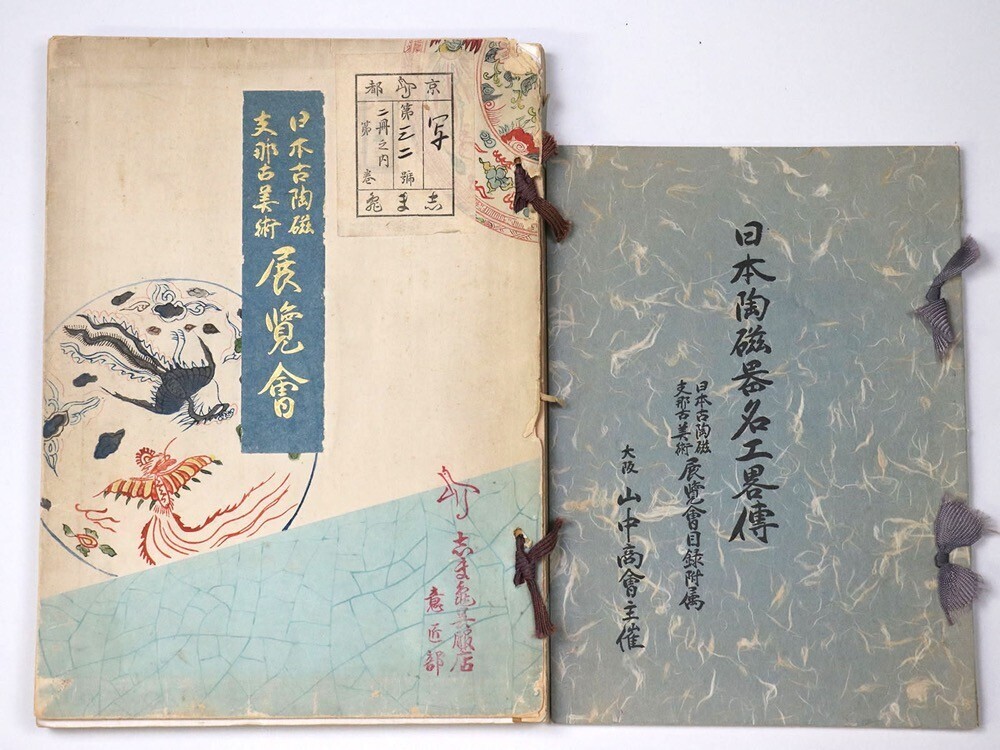 日本古陶磁
支那古美術
展覽會
京都
写
第三二號
二冊之内
第 巻
志ま亀
志ま亀呉服店
意匠部
日本陶磁器名工畧傳
日本古陶磁
支那古美術
展覽會目録附属
大阪 山中商會主催